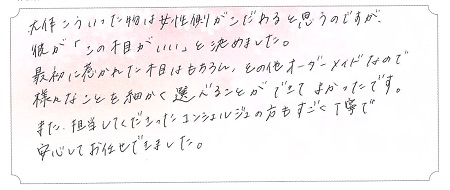 大体こういった物は女性側がこだわると思うのですが、
彼が「この木目がいい」と決めました。
最初に惹かれた木目はもちろん、その他オーダーメイドなので
様々なことを細かく選べることができてよかったです。
また、担当してくださったコンシェルジュの方もすごく丁寧で
安心してお任せできました。